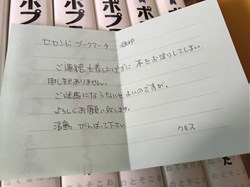 ポプ
ポプ
ポプ
セカンドブックアーチ
ご連絡も差し上げずに 本をお送りしてしまい
申し訳ありません。
ご迷惑にならないとよいのですが、
よろしくお願い致します。
活動 がんばって下さい
クロス